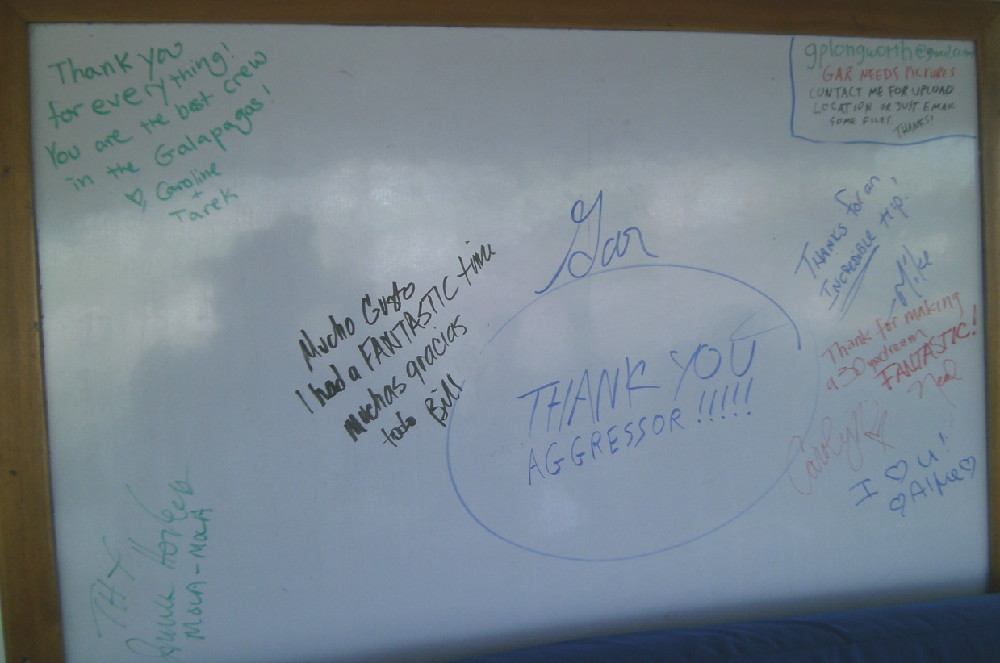 Thank you
for everything!
You are the best crew
in the Galapagos!
♡ Caroline
+
Tarek
gplongworth@gmail.com
GAR NEEDS PICTURES
CONTACT ME FOR UPLOAD
LOCATION OR JUST EMAIL
SOME FILES.
THANKS!
Gar
THANK YOU
AGGRESSOR !!!!!
Mucho Gusto
I had a FANTASTIC time
Muchas gracias
todo Bill
THANKS for an
INCREDIBLE trip.
Mike
Thank for making
a 30 yr dream
FANTASTIC!
Ned
Carolyn
I ♡ U!
♡ Alma ♡
THX
MOLA-MOLA